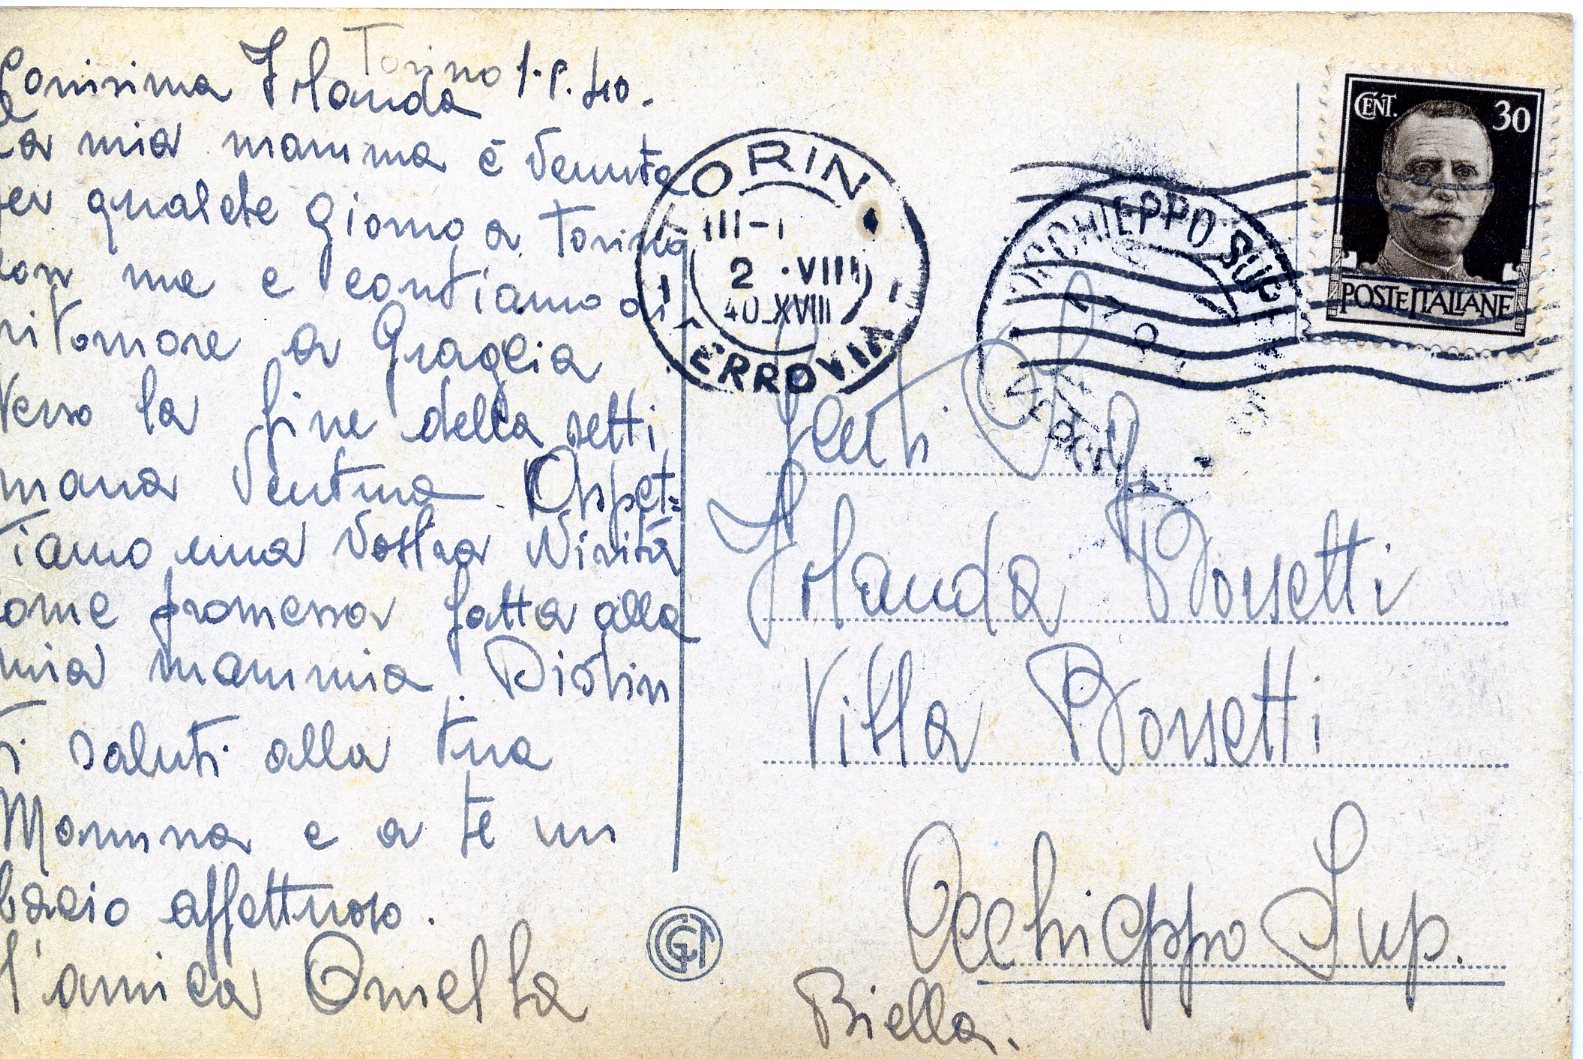 Torino 1.8.40.
Carissima Jolanda
La mia mamma è venuta
per qualche giorno a Torino
con me e contiamo di
ritornare a Graglia
verso la fine della setti
mana ventura. Aspet=
tiamo una vostra visita
come promessa fatta alla
mia mamma. Distin
ti saluti alla tua
Mamma e a te un
bacio affettuoso.
l'amica Ornella
TORINO
FERROVIA
III-I
2 VIII
40 XVIII
OCCHIEPPO SUP
VERCELLI
CENT. 30
POSTE ITALIANE
Gent. Sig.
Jolanda Borsetti
Villa Borsetti
Occhieppo Sup.
Biella.